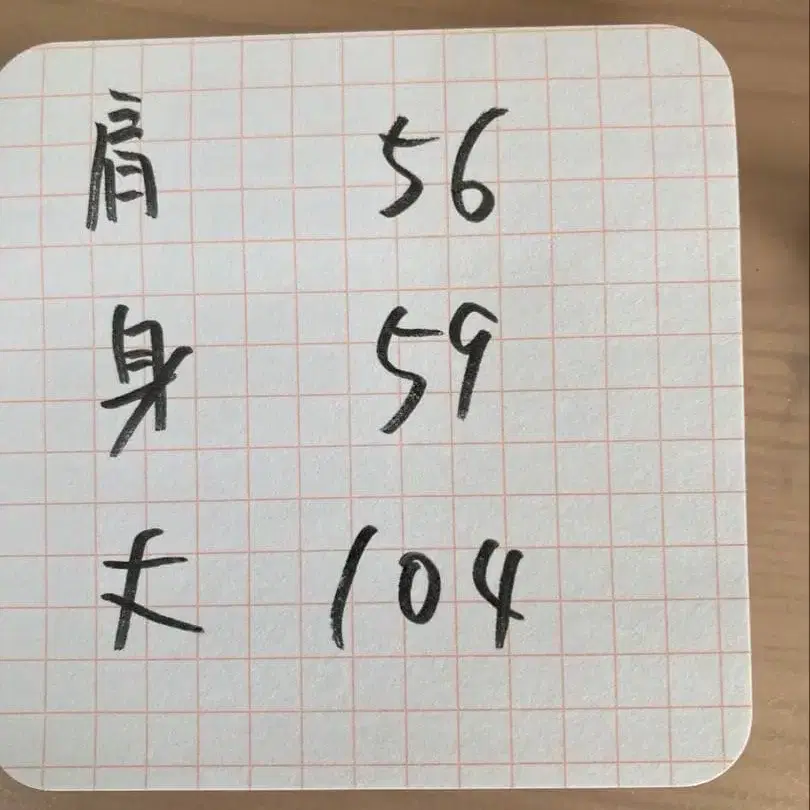 肩 56
身 59
丈 104